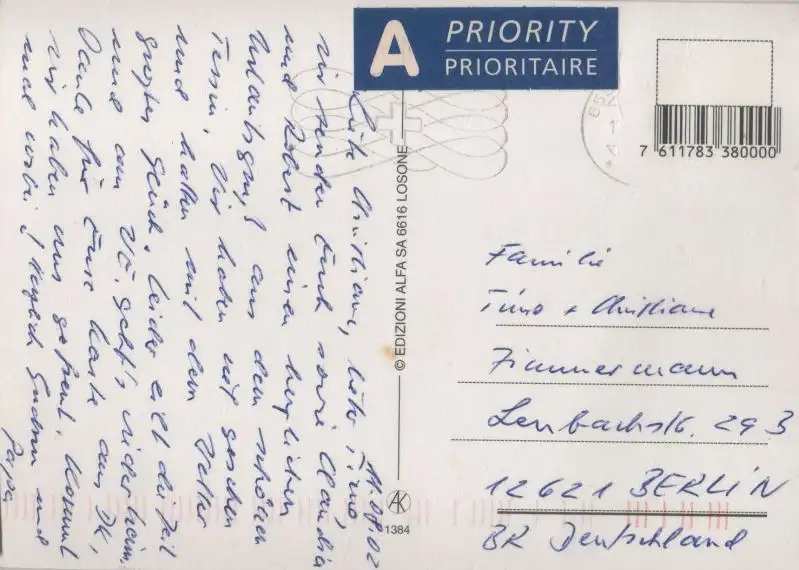 A PRIORITY
PRIORITAIRE
7 611783 380000
© EDIZIONI ALFA SA 6616 LOSONE
AK
1384
11.08.02
Liebe Christiane, lieber Timo,
wir senden Euch sowie Claudia
und Robert einen herzlichen
Urlaubsgruß aus dem schönen
Tessin. Wir haben viel gesehen
und haben mit dem Wetter
großes Glück. Leider eilt die Zeit
und am geht's wieder heim.
Danke für Eure Karte aus
wir haben uns gefreut. Kommt
mal vorbei! Herzlich Gudrun und
Papa
Familie
Timo + Christiane
Zimmermann
Lenbachstr. 293
12621 BERLIN
BR Deutschland